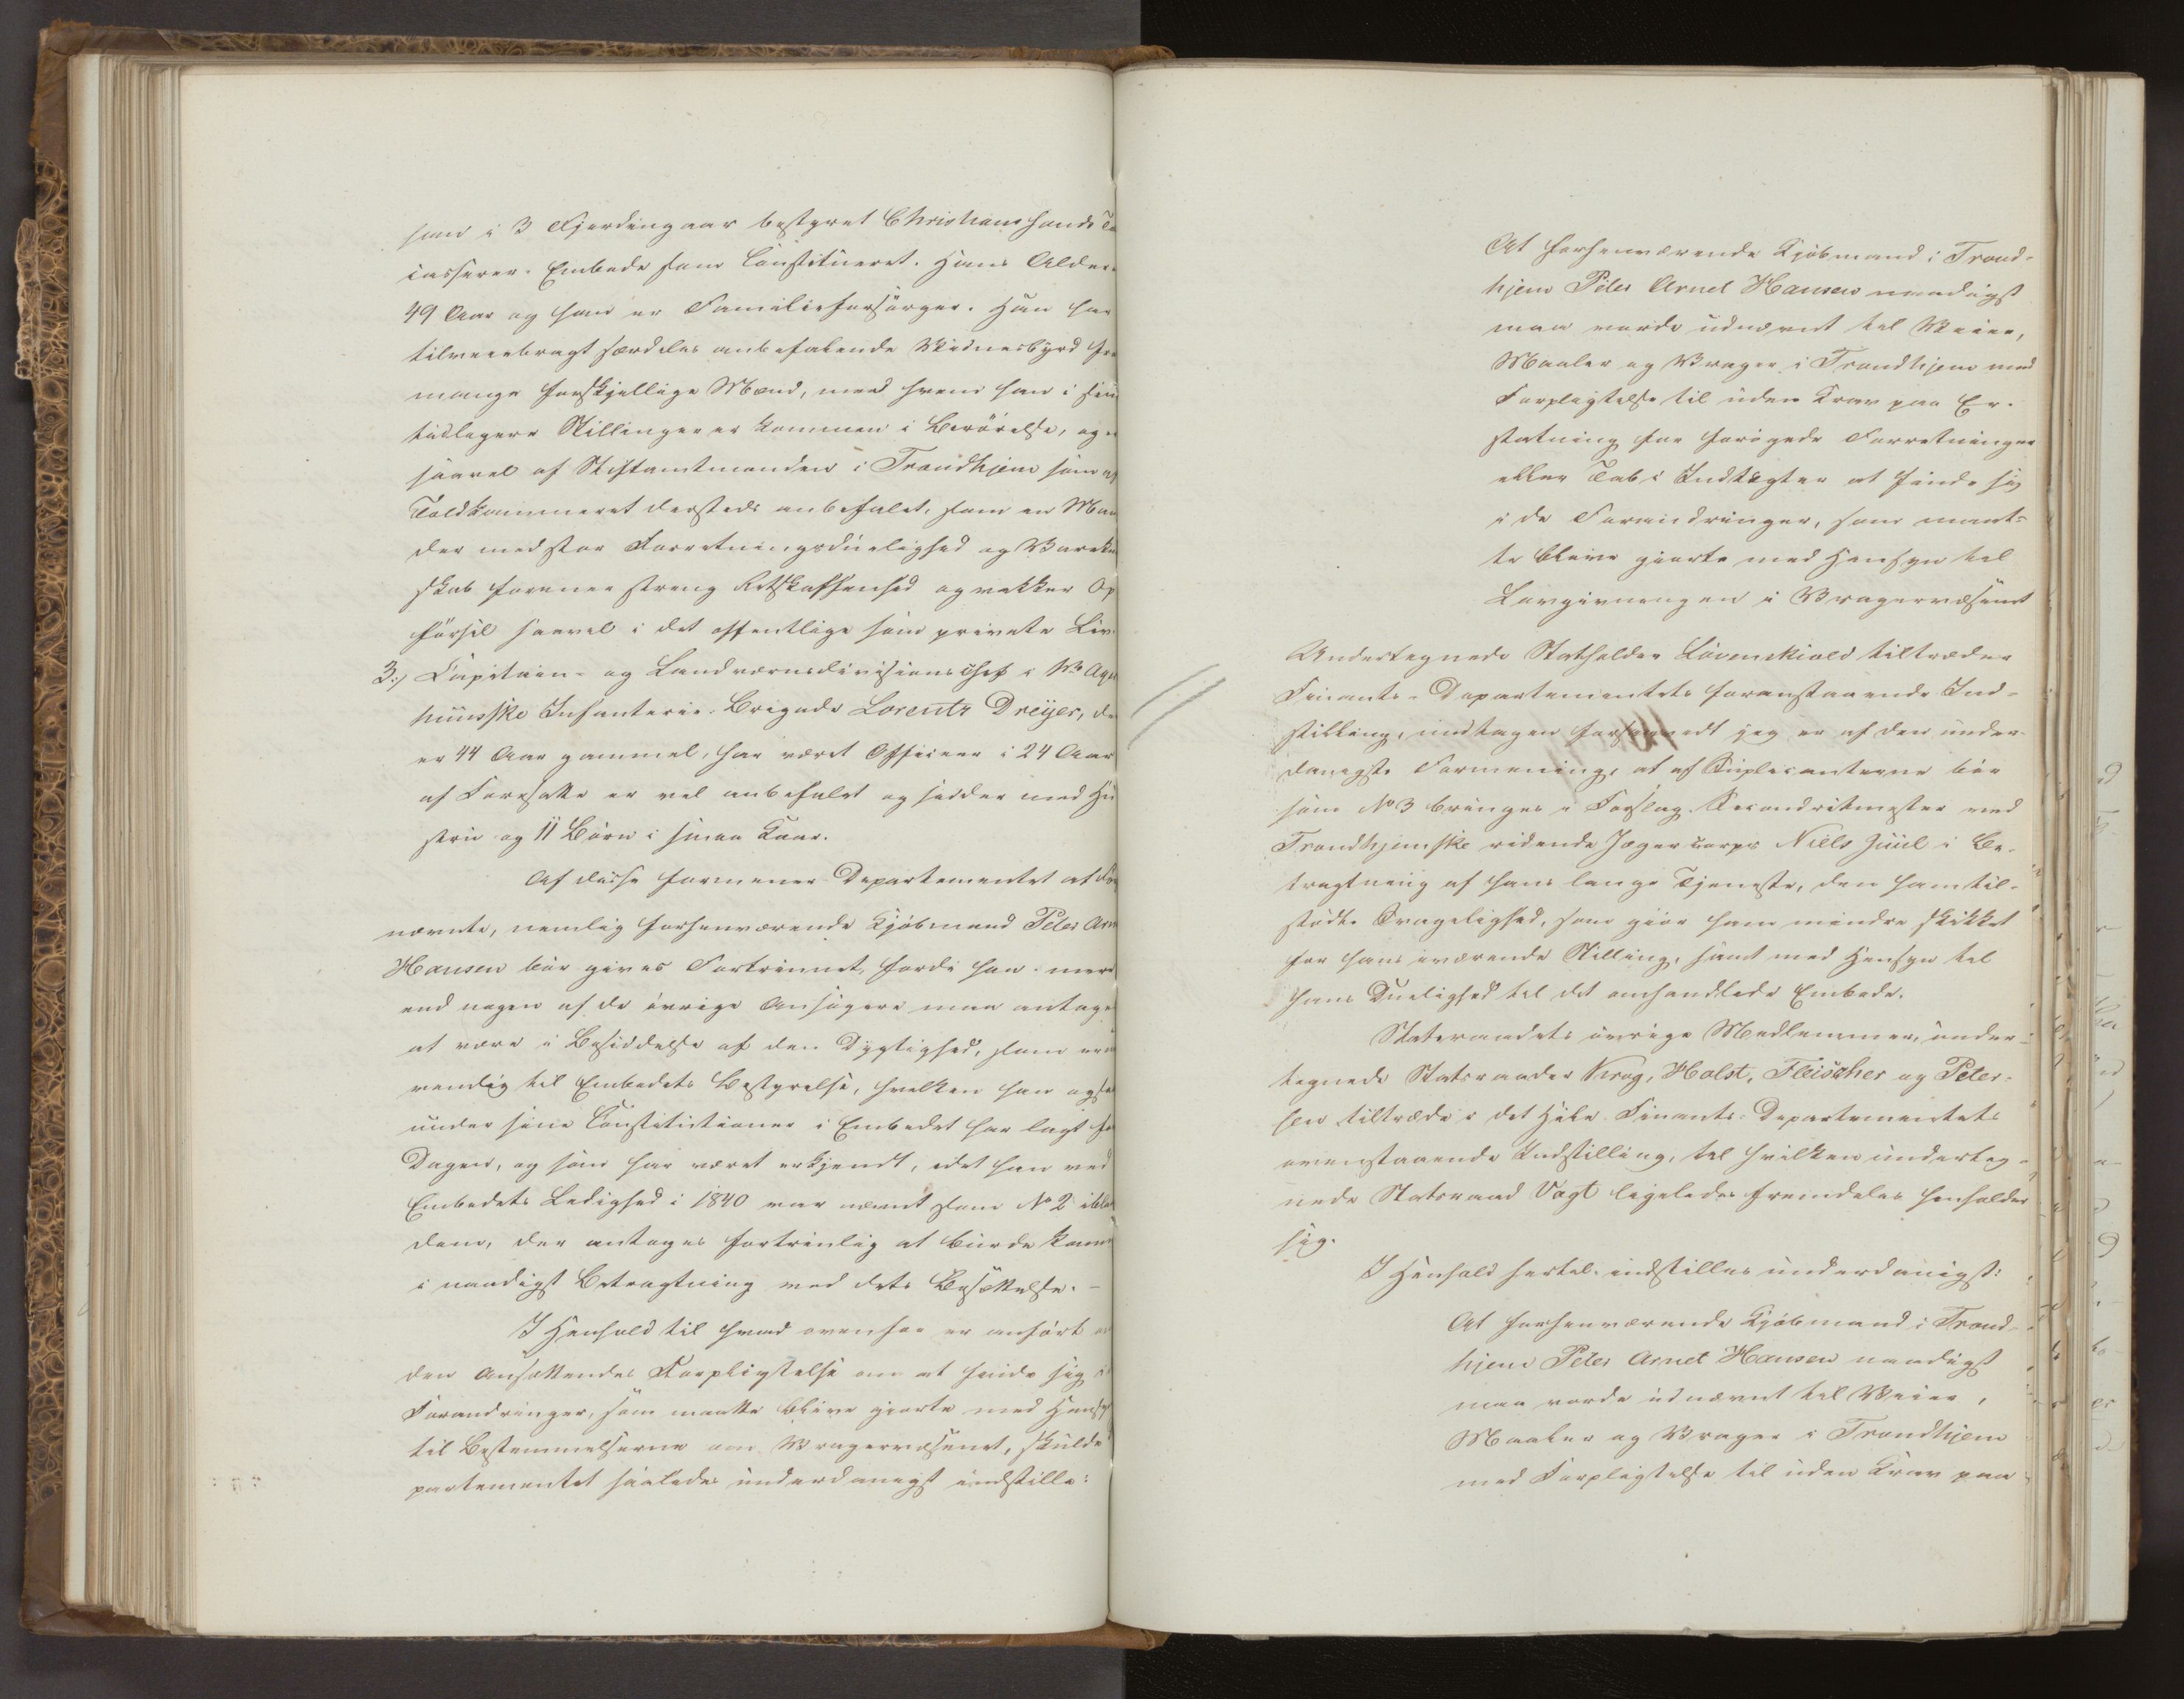 han i 3 Fjerdingaar bestyret Christianssands To
casserer-Embede som Constitueret. Hans Alder
49 Aar og han er Familieforsørger. Han har
tilveiebragt særdeles anbefalende Vidnesbyrd fra
mange forskjellige Mænd, med hvem han i sin
tidligere Stillinger er kommen i Berørelse, og
saavel af Stiftamtmanden i Trondhjem som af
Toldkammeret dersteds anbefalet, som en Man
der med stor Forretningsduelighed og Vareku
skab forener streng Retskaffenhed og vakker Op
førsel saavel i det offentlige som private Liv.
3.) Capitain- og Landværnsdivisionschef i 1ste Agers
huusske Infanterie-Brigade Lorentz Dreyer, de
er 44 Aar gammel, har været Officeer i 24 Aar
af Foresatte er vel anbefalet og sidder med Hu
stru og 11 Børn i smaa Kaar.
Af disse formener Departementet at Før
nævnte, nemlig forhenværende Kjøbmand Peter Arn
Hansen bør gives Fortrinnet, fordi han mere
end nogen af de øvrige Ansøgere maa antages
at være i Besiddelse af den Dygtighed, som nød
vendig til Embedets Bestyrelse, hvilken han ogsaa
under sine Constitutioner i Embedet har lagt for
Dagen, og som har været erkjendt, idet han ved
Embedets Ledighed i 1840 var nævnt som No 2 iblan
dem, der antoges fortrinlig at burde komme
i naadigst Betragtning ved dets Besættelse. -
I Henhold til hvad ovenfor er anført
den Ansættendes Forpligtelse om at finde sig i
Forandringer, som maatte blive gjorte med Hensyn
til Bestemmelserne om Vragervæsenet, skulde
partementet saaledes underdanigst indstille:
At forhenværende Kjøbmand i Trond-
hjem Peter Arnet Hansen naadigst
maa vorde udnævnt til Veier,
Maaler og Vrager i Trondhjem med
Forpligtelse til uden Krav paa Er-
statning for forøgede Forretninger
eller Tab i Indtægter at finde sig
i de Forandringer, som maat-
te blive gjorte med Hensyn til
Lovgivningen i Vragervæsenet
Undertegnede Statholder Løvenskiold tiltræder
Finants-Departementets foranstaaende Ind-
stilling, undtagen forsaavidt jeg er af den under-
danigste Formening, at af Supplicanterne bør
som No 3 bringes i Forslag Secondritmester ved
Trondhjemske ridende Jægercorps Niels Juul i Be-
tragtning af hans lange Tjeneste, den ham til-
stødte Svagelighed, som gjør ham mindre skikket
for hans iværende Stilling, samt med Hensyn til
hans Duelighed til det omhandlede Embede.
Statsraadets øvrige Medlemmer, under-
tegnede Statsraader Krog, Holst, Fleischer og Peter-
sen tiltræde i det Hele Finants-Departementets
ovenstaaende Indstilling, til hvilken underteg-
nede Statsraad Vogt ligeledes fremdeles henholder
sig.
I Henhold hertil indstilles underdanigst:
At forhenværende Kjøbmand i Trond-
hjem Peter Arnet Hansen naadigst
maa vorde udnævnt til Veier,
Maaler og Vrager i Trondhjem
med Forpligtelse til uden Krav paa